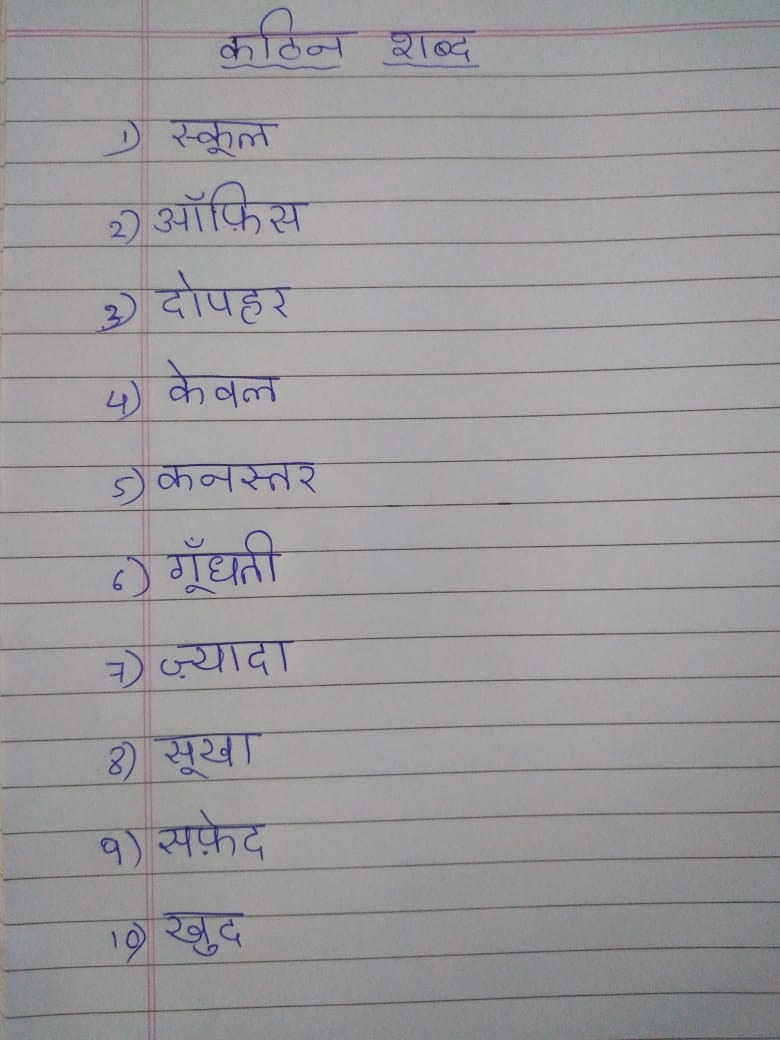 कठिन शब्द
1) स्कूल
2) ऑफ़िस
3) दोपहर
4) केवल
5) कनस्तर
6) गूँधती
7) ज़्यादा
8) सूखा
9) सफ़ेद
10) खुद